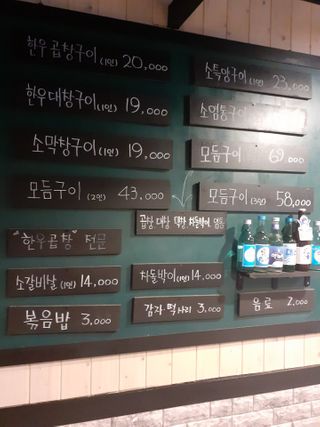 한우곱창구이 (1인) 20,000
소특양구이 (1인) 23,000
한우대창구이 (1인) 19,000
소염통구이
소막창구이 (1인) 19,000
모듬구이 69,000
모듬구이 (2인) 43,000
모듬구이 (3인) 58,000
곱창 대창 막창 차돌박이 염통
"한우곱창" 전문
소갈비살 (1인) 14,000
차돌박이 (1인) 14,000
볶음밥 3,000
감자 떡 사리 3,000
음료 2,000